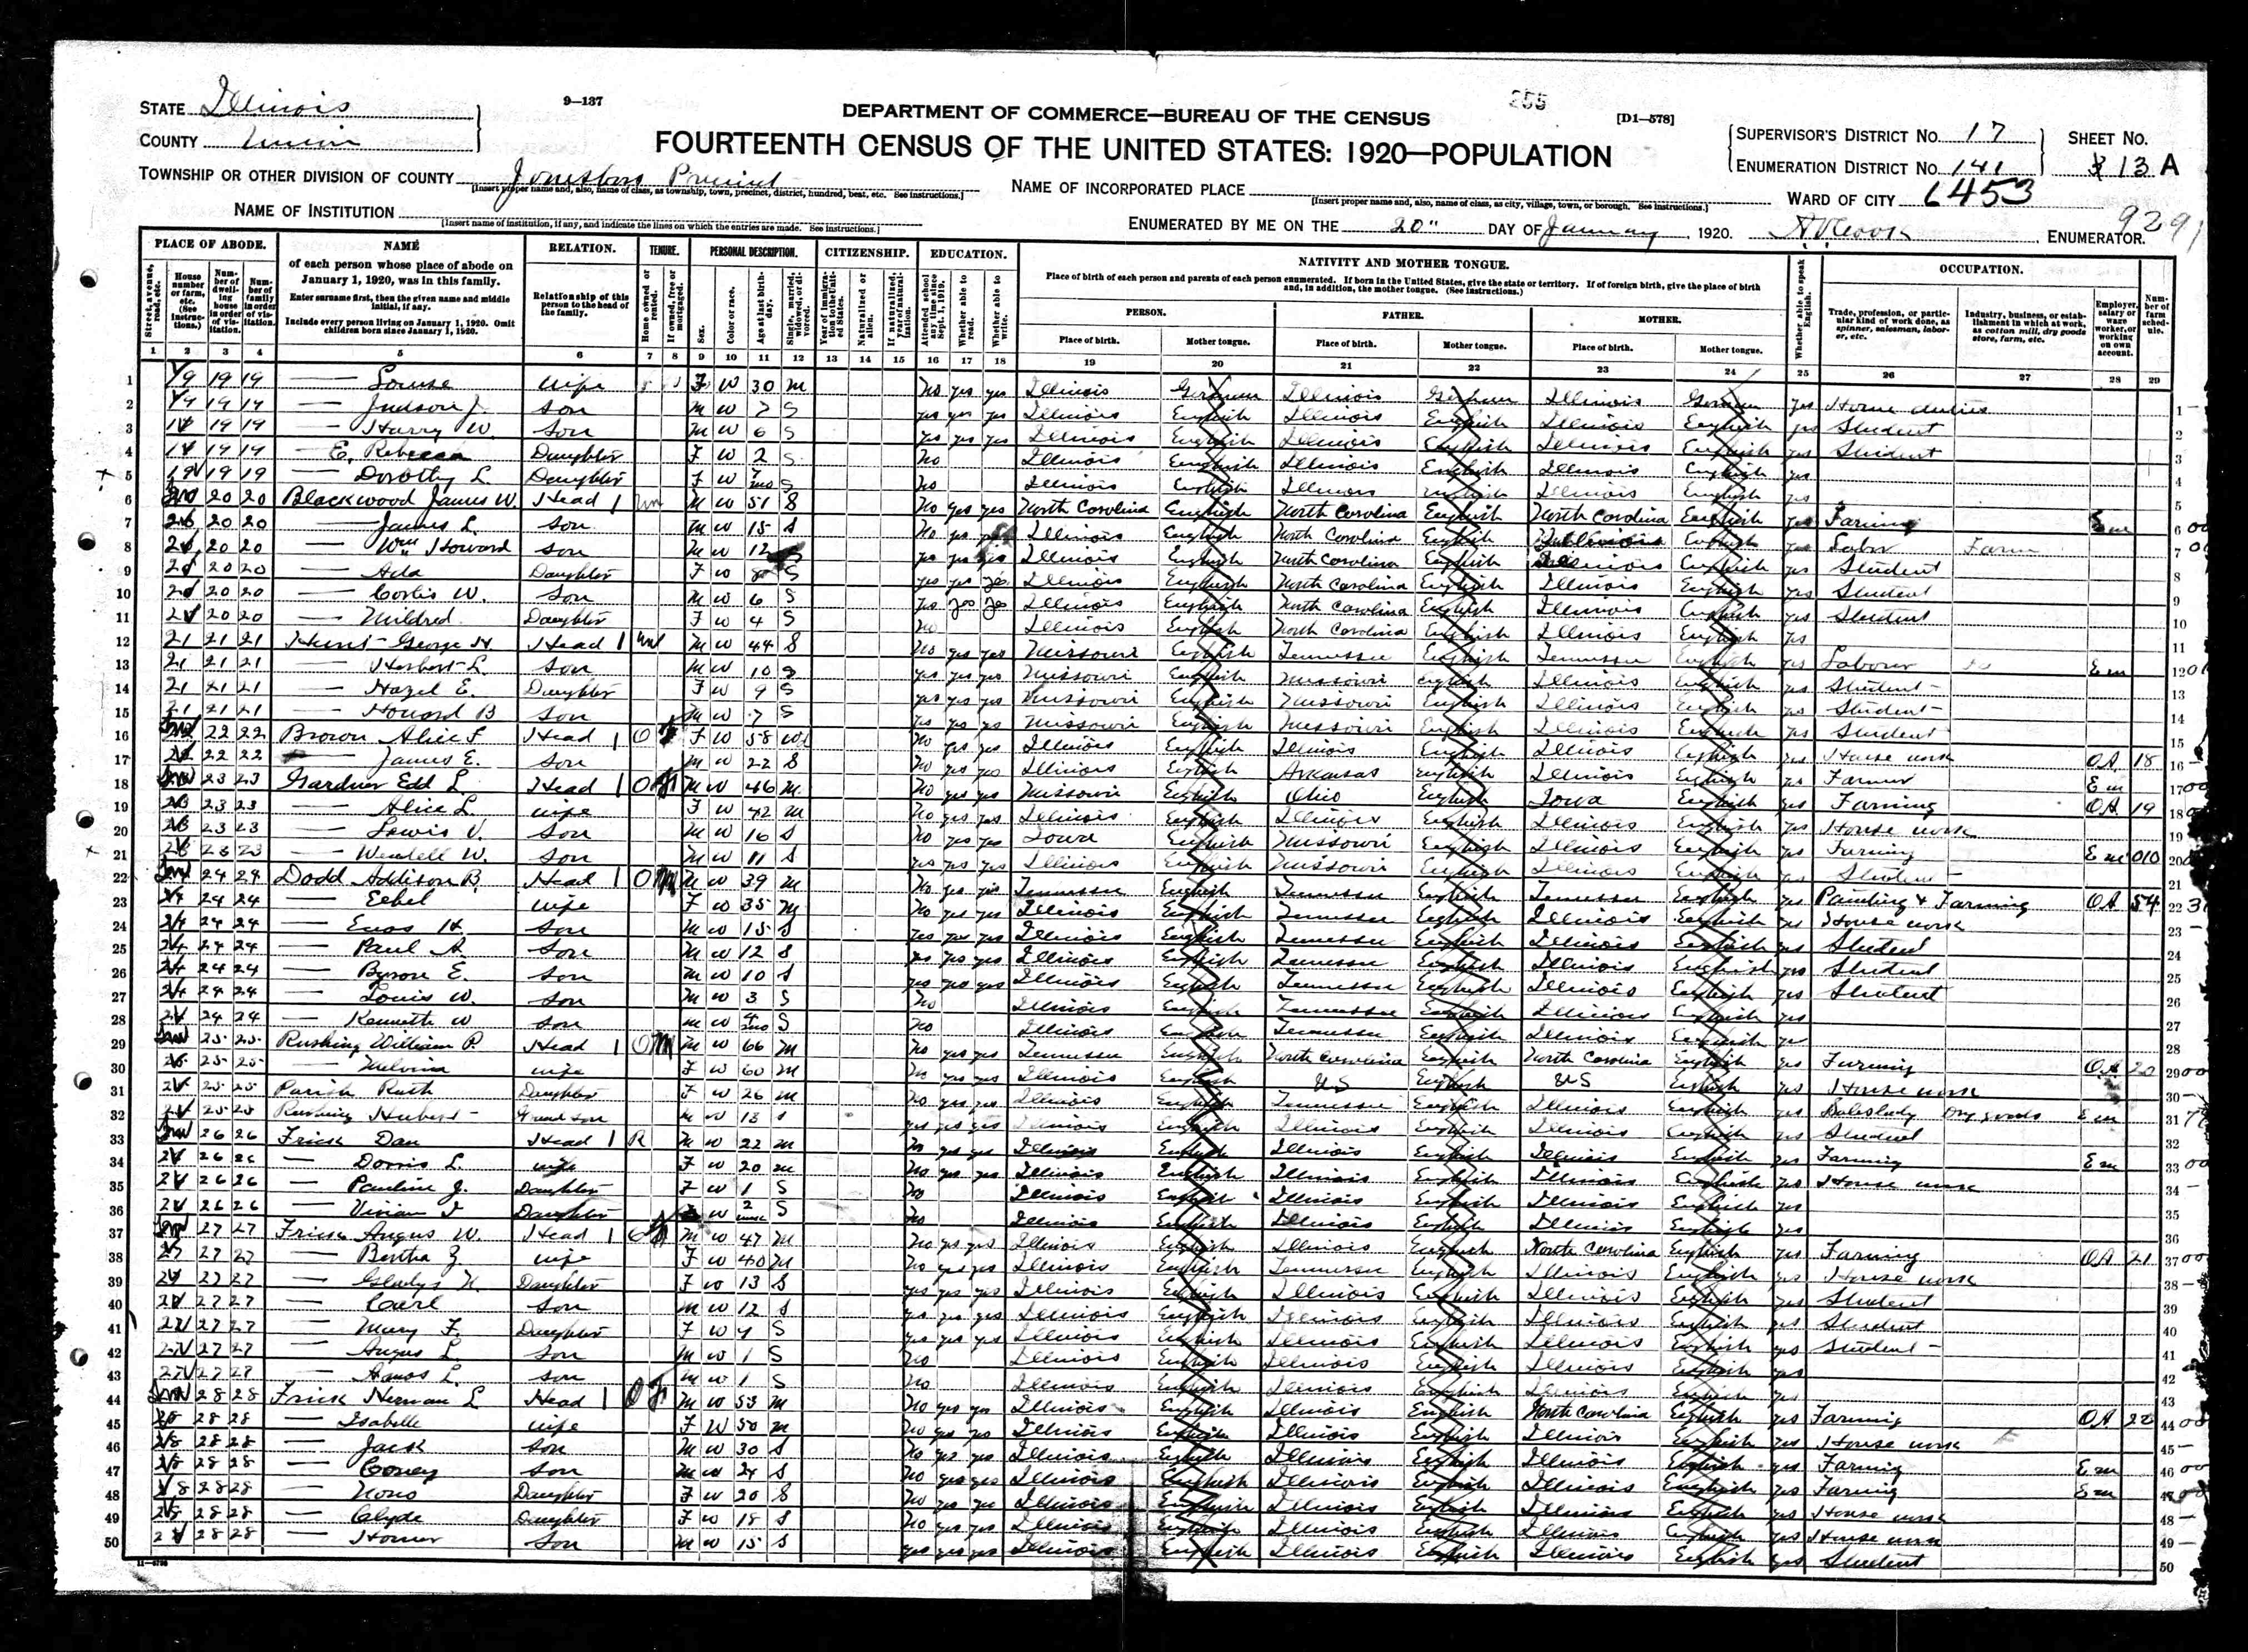 STATE Illinois
9—137
DEPARTMENT OF COMMERCE—BUREAU OF THE CENSUS
255
[D1—578]
COUNTY Union
FOURTEENTH CENSUS OF THE UNITED STATES: 1920—POPULATION
SUPERVISOR'S DISTRICT No. 17
SHEET No.
ENUMERATION DISTRICT No. 141
13 A
TOWNSHIP OR OTHER DIVISION OF COUNTY Jonesboro Precinct
[Insert proper name and, also, name of class, as township, town, precinct, district, hundred, beat, etc. See instructions.]
NAME OF INCORPORATED PLACE
[Insert proper name and, also, name of class, as city, village, town, or borough. See instructions.]
WARD OF CITY 6453
NAME OF INSTITUTION
[Insert name of institution, if any, and indicate the lines on which the entries are made. See instructions.]
ENUMERATED BY ME ON THE 20" DAY OF January, 1920. ENUMERATOR.
9291
PLACE OF ABODE. NAME RELATION. TENURE. PERSONAL DESCRIPTION. CITIZENSHIP. EDUCATION. NATIVITY AND MOTHER TONGUE. OCCUPATION.
of each person whose place of abode on January 1, 1920, was in this family.
Enter surname first, then the given name and middle initial, if any.
Include every person living on January 1, 1920. Omit children born since January 1, 1920.
Relationship of this person to the head of the family.
Place of birth of each person and parents of each person enumerated. If born in the United States, give the state or territory. If of foreign birth, give the place of birth and, in addition, the mother tongue. (See instructions.)
PERSON. FATHER. MOTHER.
Place of birth. Mother tongue. Place of birth. Mother tongue. Place of birth. Mother tongue.
Street, avenue, road, etc.
House number or farm, etc. (See instructions.)
Number of dwelling house in order of visitation.
Number of family in order of visitation.
Home owned or rented.
If owned, free or mortgaged.
Sex.
Color or race.
Age at last birthday.
Single, married, widowed, or divorced.
Year of immigration to the United States.
Naturalized or alien.
If naturalized, year of naturalization.
Attended school any time since Sept. 1, 1919.
Whether able to read.
Whether able to write.
Whether able to speak English.
Trade, profession, or particular kind of work done, as spinner, salesman, laborer, etc.
Industry, business, or establishment in which at work, as cotton mill, dry goods store, farm, etc.
Employer, salary or wage worker, or working on own account.
Number of farm schedule.
1 2 3 4 5 6 7 8 9 10 11 12 13 14 15 16 17 18 19 20 21 22 23 24 25 26 27 28 29
1 19 19 19 — Louise wife F W 30 M No yes yes Illinois German Illinois German Illinois German yes Home duties
2 19 19 19 — Judson J. Son M W 7 S yes yes yes Illinois English Illinois English Illinois English yes Student
3 19 19 19 — Harry W. Son M W 6 S yes yes yes Illinois English Illinois English Illinois English yes Student
4 19 19 19 — E. Rebecca Daughter F W 2 S No Illinois English Illinois English Illinois English yes
5 19 19 19 — Dorothy L. Daughter F W S No Illinois English Illinois English Illinois English yes
6 20 20 Blackwood James W. Head 1 M W 51 S No yes yes North Carolina English North Carolina English North Carolina English yes Farming Em
7 20 20 20 — James L. Son M W 15 S No yes yes Illinois English North Carolina English Illinois English yes Labor Farm
8 20 20 20 — Wm Howard Son M W 12 S yes yes yes Illinois English North Carolina English Illinois English yes Student
9 20 20 20 — Ada Daughter F W 8 S yes yes yes Illinois English North Carolina English Illinois English yes Student
10 20 20 20 — W. Son M W 6 S yes yes yes Illinois English North Carolina English Illinois English yes Student
11 20 20 20 — Mildred Daughter F W 4 S No Illinois English North Carolina English Illinois English yes
12 21 21 21 Hunt George H. Head 1 M W 44 S No yes yes Missouri English Tennessee English Tennessee English yes Labour Em
13 21 21 21 — Herbert L. Son M W 10 S yes yes yes Missouri English Missouri English Illinois English yes Student
14 21 21 21 — Hazel E. Daughter F W 9 S yes yes yes Missouri English Missouri English Illinois English yes Student
15 21 21 21 — Howard B Son M W 7 S yes yes yes Missouri English Missouri English Illinois English yes Student
16 22 22 Brown Alice F. Head 1 O F W 58 Wd No yes yes Illinois English Illinois English Illinois English yes House work OA 18
17 22 22 22 — James E. Son M W 22 S No yes yes Illinois English Arkansas English Illinois English yes Farmer Em
18 23 23 Gardner Edd L. Head 1 O M W 46 M No yes yes Missouri English Ohio English Iowa English yes Farming OA 19
19 23 23 23 — Alice L. wife F W 42 M No yes yes Illinois English Illinois English Illinois English yes House work
20 23 23 23 — Lewis V. Son M W 16 S No yes yes Iowa English Missouri English Illinois English yes Farming Em
21 23 23 23 — Wendell W. Son M W 11 S yes yes yes Illinois English Missouri English Illinois English yes Student
22 24 24 Dodd Addison B. Head 1 O M M W 39 M No yes yes Tennessee English Tennessee English Tennessee English yes Painting & Farming OA 54
23 24 24 24 — Ethel wife F W 35 M No yes yes Illinois English Tennessee English Illinois English yes House work
24 24 24 24 — Enos H. Son M W 15 S yes yes yes Illinois English Tennessee English Illinois English yes Student
25 24 24 24 — Paul A. Son M W 12 S yes yes yes Illinois English Tennessee English Illinois English yes Student
26 24 24 24 — Byron E. Son M W 10 S yes yes yes Illinois English Tennessee English Illinois English yes Student
27 24 24 24 — Louis W. Son M W 3 S No Illinois English Tennessee English Illinois English yes
28 24 24 24 — Kenneth W Son M W S No Illinois English Tennessee English Illinois English yes
29 25 25 Rushing William P. Head 1 O M M W 66 M No yes yes Tennessee English North Carolina English North Carolina English yes Farming OA 20
30 25 25 25 — Melvina wife F W 60 M No yes yes Illinois English US English US English yes House work
31 25 25 25 Parish Ruth Daughter F W 26 M No yes yes Illinois English Tennessee English Illinois English yes Saleslady Dry goods Em
32 25 25 25 Rushing Hubert Grand son M W 18 S yes yes yes Illinois English Illinois English Illinois English yes Student
33 26 26 Frick Dan Head 1 R M W 22 M No yes yes Illinois English Illinois English Illinois English yes Farming Em
34 26 26 26 — Dorris L. wife F W 20 M No yes yes Illinois English Illinois English Illinois English yes House work
35 26 26 26 — Pauline J. Daughter F W 1 S No Illinois English Illinois English Illinois English yes
36 26 26 26 — Vivian Daughter F W S No Illinois English Illinois English Illinois English yes
37 27 27 Frick Angus W. Head 1 O F M W 47 M No yes yes Illinois English Illinois English North Carolina English yes Farming OA 21
38 27 27 27 — Bertha Z. wife F W 40 M No yes yes Illinois English Tennessee English Illinois English yes House work
39 27 27 27 — Gladys N. Daughter F W 13 S yes yes yes Illinois English Illinois English Illinois English yes Student
40 27 27 27 — Carl Son M W 12 S yes yes yes Illinois English Illinois English Illinois English yes Student
41 27 27 27 — Mary F. Daughter F W 7 S yes yes yes Illinois English Illinois English Illinois English yes Student
42 27 27 27 — Angus L. Son M W 1 S No Illinois English Illinois English Illinois English yes
43 27 27 27 — L. Son M W 1 S No Illinois English Illinois English Illinois English yes
44 28 28 Frick Herman L Head 1 O F M W 53 M No yes yes Illinois English Illinois English North Carolina English yes Farming OA 22
45 28 28 28 — Isabelle wife F W 50 M No yes yes Illinois English Illinois English Illinois English yes House work
46 28 28 28 — Jack Son M W 30 S No yes yes Illinois English Illinois English Illinois English yes Farming Em
47 28 28 28 — Coney Son M W 24 S No yes yes Illinois English Illinois English Illinois English yes Farming Em
48 28 28 28 — Nono Daughter F W 20 S No yes yes Illinois English Illinois English Illinois English yes House work
49 28 28 28 — Clyde Daughter F W 18 S No yes yes Illinois English Illinois English Illinois English yes House work
50 28 28 28 — Homer Son M W 15 S yes yes yes Illinois English Illinois English Illinois English yes Student